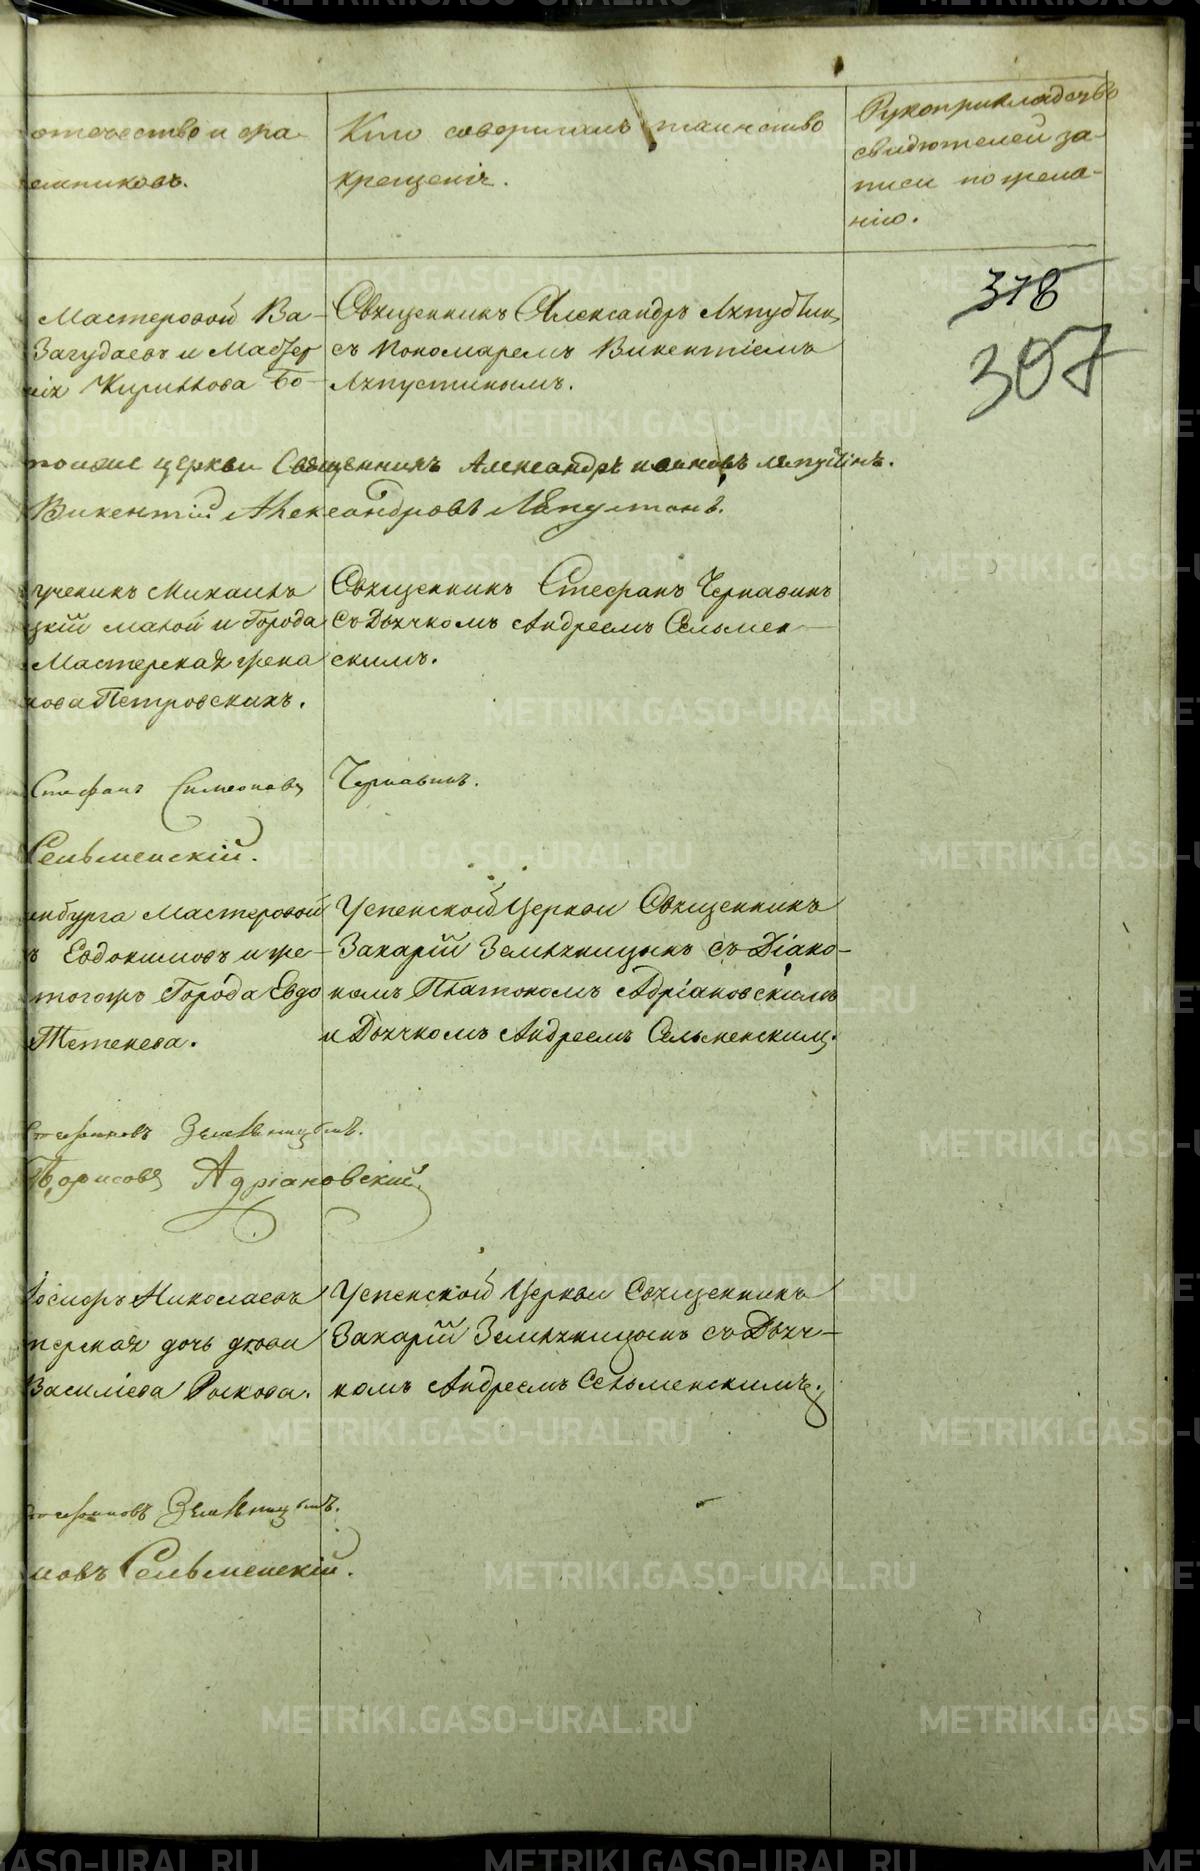 отечество и фа-
емниковъ.
Кто совершалъ таинство
крещенія.
Рукоприкладство
свидѣтелей за-
писи по жела-
нію.
318
307
Мастеровой Ва-
Загудаевъ и
Кириллова Бо-
Священникъ Александръ Ляпустинъ
съ Пономаремъ Викентіемъ
Ляпустинымъ.
тойже церкви Священникъ Александръ Іоанновъ Ляпустинъ.
Викентій Александровъ Ляпустинъ.
ученикъ Михаилъ
цкій малой и Города
Мастерская жена
нова Петровскихъ.
Священникъ Стефанъ Чернавинъ
съ Дьячкомъ Андреемъ Сельмен-
скимъ.
Стефанъ Симеоновъ Чернавинъ.
Сельменскій.
инбурга Мастеровой
ъ Евдокимовъ и же-
тогожъ Города Евдо
Тетенева.
Успенской Церкви Священникъ
Захарій Земляницынъ съ Діако-
номъ Платономъ Адріановскимъ
и Дьячкомъ Андреемъ Сельменскимъ.
Стефановъ Земляницынъ.
Борисовъ Адріановскій.
Іосифъ Николаевъ
терская дочь дѣвка
Василіева Рыкова.
Успенской Церкви Священникъ
Захарій Земляницынъ съ Дьяч-
комъ Андреемъ Сельменскимъ.
Стефановъ Земляницынъ.
новъ Сельменскій.
METRIKI.GASO-URAL.RU